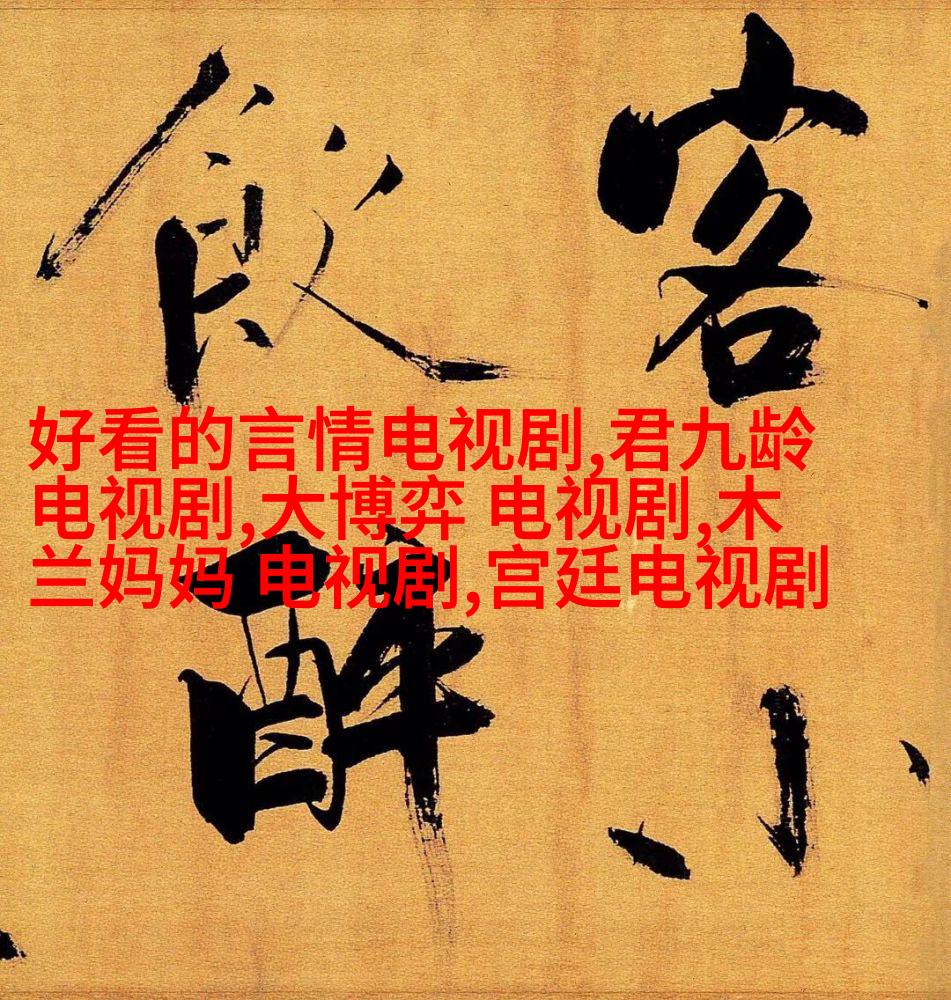 客小
飲醉
好看的言情电视剧,君九龄
电视剧,大博弈 电视剧,木
兰妈妈 电视剧,宫廷电视剧